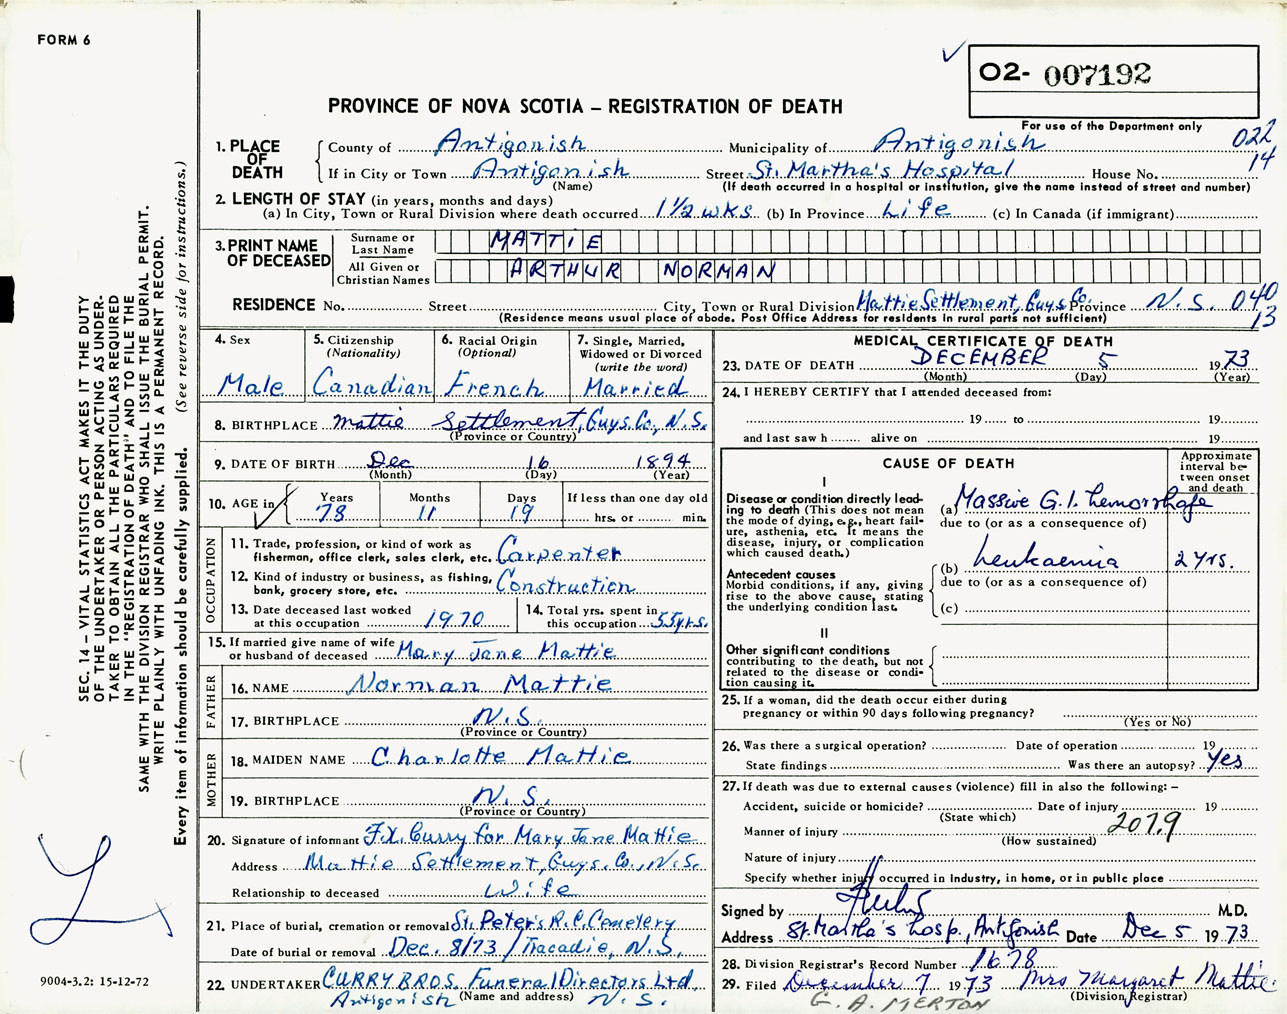 FORM 6
O2- 007192
PROVINCE OF NOVA SCOTIA – REGISTRATION OF DEATH
For use of the Department only
022
14
1. PLACE OF DEATH
County of Antigonish Municipality of Antigonish
If in City or Town Antigonish Street St. Martha's Hospital House No.
(Name) (If death occurred in a hospital or institution, give the name instead of street and number)
2. LENGTH OF STAY (in years, months and days)
(a) In City, Town or Rural Division where death occurred 1 1/2 wks (b) In Province Life (c) In Canada (if immigrant)
3. PRINT NAME OF DECEASED
Surname or Last Name MATTIE
All Given or Christian Names ARTHUR NORMAN
RESIDENCE No. Street City, Town or Rural Division Mattie Settlement, Guys. Co. Province N.S. 040
(Residence means usual place of abode. Post Office Address for residents in rural parts not sufficient) 13
4. Sex Male
5. Citizenship (Nationality) Canadian
6. Racial Origin (Optional) French
7. Single, Married, Widowed or Divorced (write the word) Married
8. BIRTHPLACE Mattie Settlement, Guys. Co., N.S.
(Province or Country)
9. DATE OF BIRTH Dec 16 1894
(Month) (Day) (Year)
10. AGE in Years 78 Months 11 Days 19 If less than one day old hrs. or min.
OCCUPATION
11. Trade, profession, or kind of work as fisherman, office clerk, sales clerk, etc. Carpenter
12. Kind of industry or business, as fishing, bank, grocery store, etc. Construction
13. Date deceased last worked at this occupation 1970
14. Total yrs. spent in this occupation 55 yrs.
15. If married give name of wife or husband of deceased Mary Jane Mattie
FATHER
16. NAME Norman Mattie
17. BIRTHPLACE N.S.
(Province or Country)
MOTHER
18. MAIDEN NAME Charlotte Mattie
19. BIRTHPLACE N.S.
(Province or Country)
20. Signature of informant F.X. Curry for Mary Jane Mattie
Address Mattie Settlement, Guys. Co., N.S.
Relationship to deceased Wife
21. Place of burial, cremation or removal St. Peter's R.C. Cemetery
Date of burial or removal Dec. 8/73 / Tracadie, N.S.
22. UNDERTAKER CURRY BROS. Funeral Directors Ltd.
Antigonish (Name and address) N.S.
MEDICAL CERTIFICATE OF DEATH
23. DATE OF DEATH DECEMBER 5 1973
(Month) (Day) (Year)
24. I HEREBY CERTIFY that I attended deceased from:
19 to 19
and last saw h alive on 19
CAUSE OF DEATH
Approximate interval between onset and death
I
Disease or condition directly leading to death (This does not mean the mode of dying, e.g., heart failure, asthenia, etc. It means the disease, injury, or complication which caused death.)
(a) Massive G.I. hemorrhage
due to (or as a consequence of)
Antecedent causes
Morbid conditions, if any, giving rise to the above cause, stating the underlying condition last.
(b) Leukaemia 2 yrs.
due to (or as a consequence of)
(c)
II
Other significant conditions contributing to the death, but not related to the disease or condition causing it.
25. If a woman, did the death occur either during pregnancy or within 90 days following pregnancy?
(Yes or No)
26. Was there a surgical operation? Date of operation 19
State findings Was there an autopsy? Yes
27. If death was due to external causes (violence) fill in also the following: –
Accident, suicide or homicide? Date of injury 19
(State which)
Manner of injury 207.9
(How sustained)
Nature of injury
Specify whether injury occurred in industry, in home, or in public place
Signed by M.D.
Address St. Martha's hosp., Antigonish Date Dec 5 1973
28. Division Registrar's Record Number 1678
29. Filed December 7 1973 Mrs Margaret Mattie
(Division Registrar)
G. A. MERTON
SEC. 14 – VITAL STATISTICS ACT MAKES IT THE DUTY
OF THE UNDERTAKER OR PERSON ACTING AS UNDER-
TAKER TO OBTAIN ALL THE PARTICULARS REQUIRED
IN THE "REGISTRATION OF DEATH" AND TO FILE THE
SAME WITH THE DIVISION REGISTRAR WHO SHALL ISSUE THE BURIAL PERMIT.
WRITE PLAINLY WITH UNFADING INK. THIS IS A PERMANENT RECORD.
Every item of information should be carefully supplied. (See reverse side for instructions.)
9004-3.2: 15-12-72